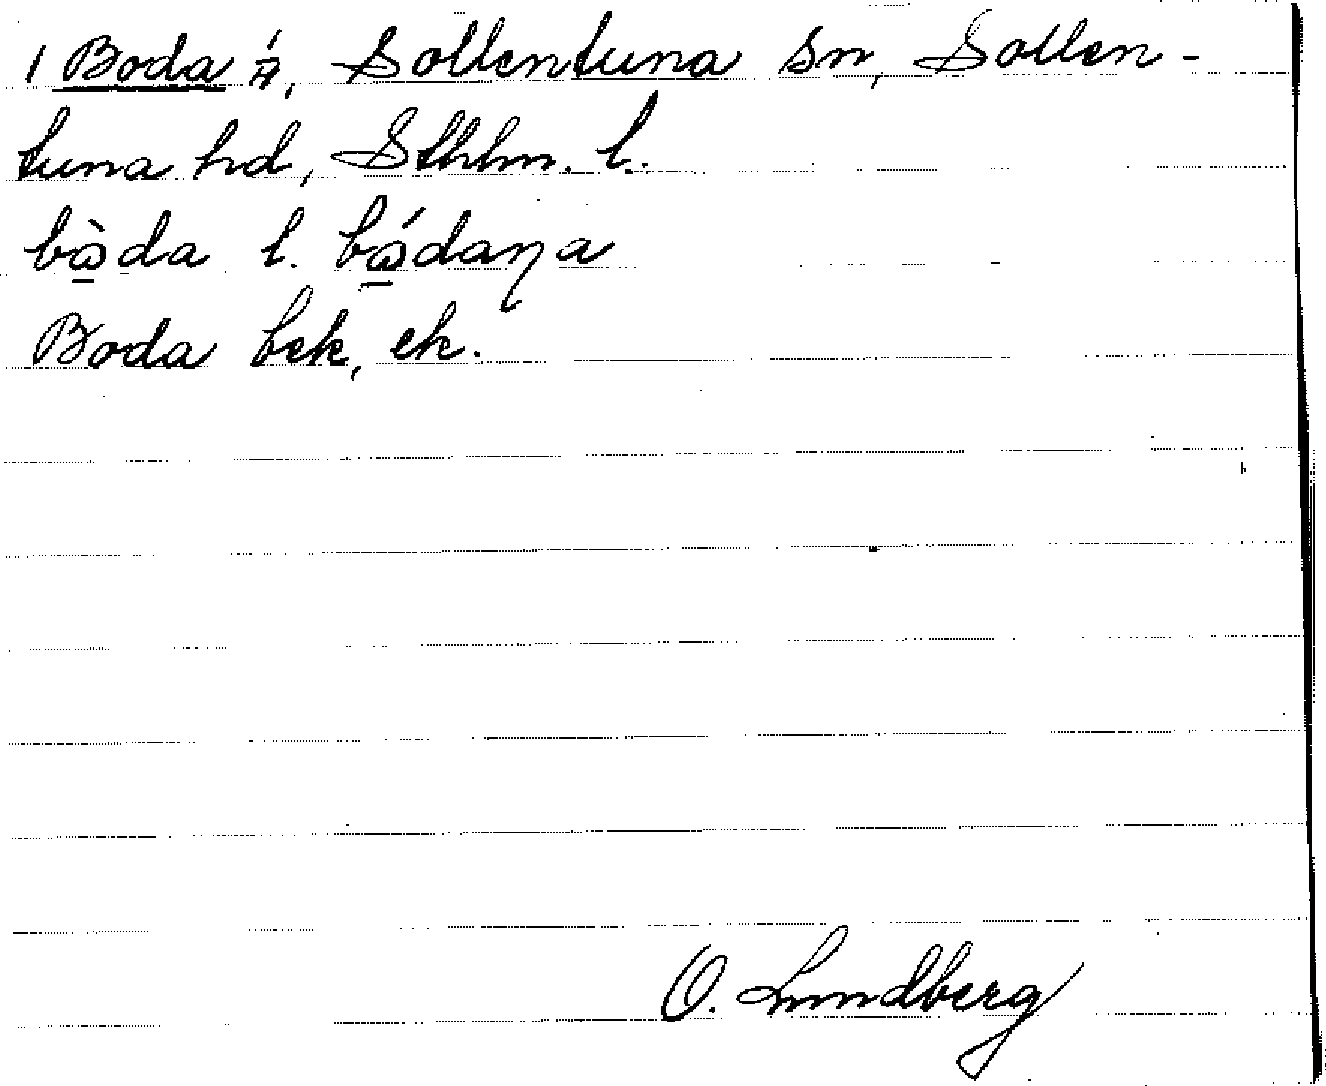 1 Boda Å, Sollentuna sn, Sollen-
tuna hd, Sthlm. l.
bò̱da l. bó̱daŋa
Boda bek, ek.
O. Lundberg